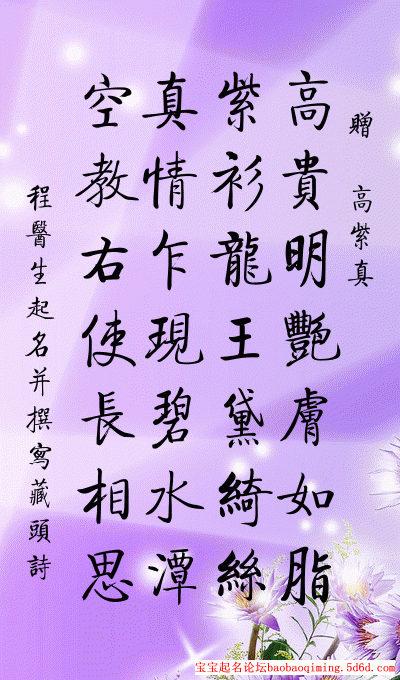 贈 高紫真
高貴明艷膚如脂
紫衫龍王黛綺絲
真情乍現碧水潭
空教右使長相思
程醫生起名并撰寫藏頭詩
宝宝起名论坛baobaoqiming.5d6d.com